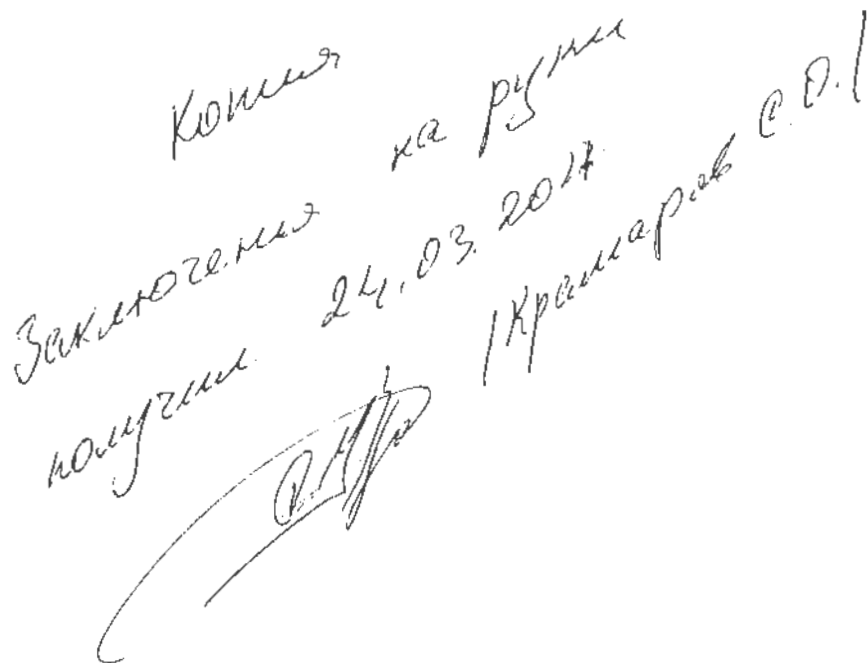 Копия
Заключения на руки
получил 24.03.2017
/Крамаров С.О./